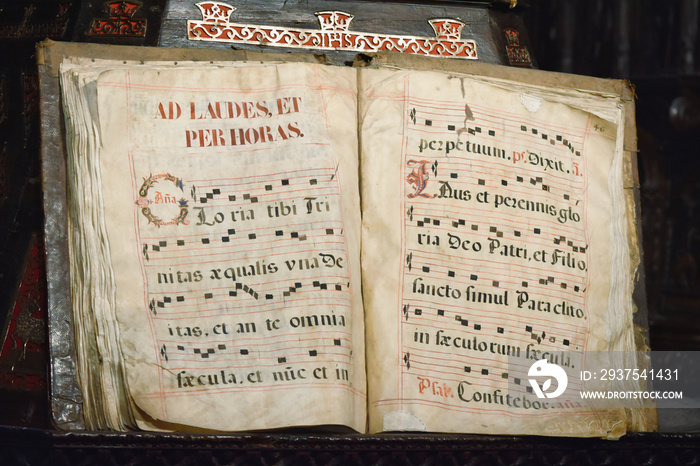 IHS
AD LAUDES, ET
PER HORAS.
Aña
Glo ria tibi Tri
nitas æqualis vna De
itas, et an te omnia
sæcula, et nũc et in
perpetuum. ps. Dixit. a.
Laus et perennis glo
ria Deo Patri, et Filio,
sancto simul Paraclito,
in sæculorum sæcula.
Psal. Confitebor. aña
Adobe Stock | #2937541431